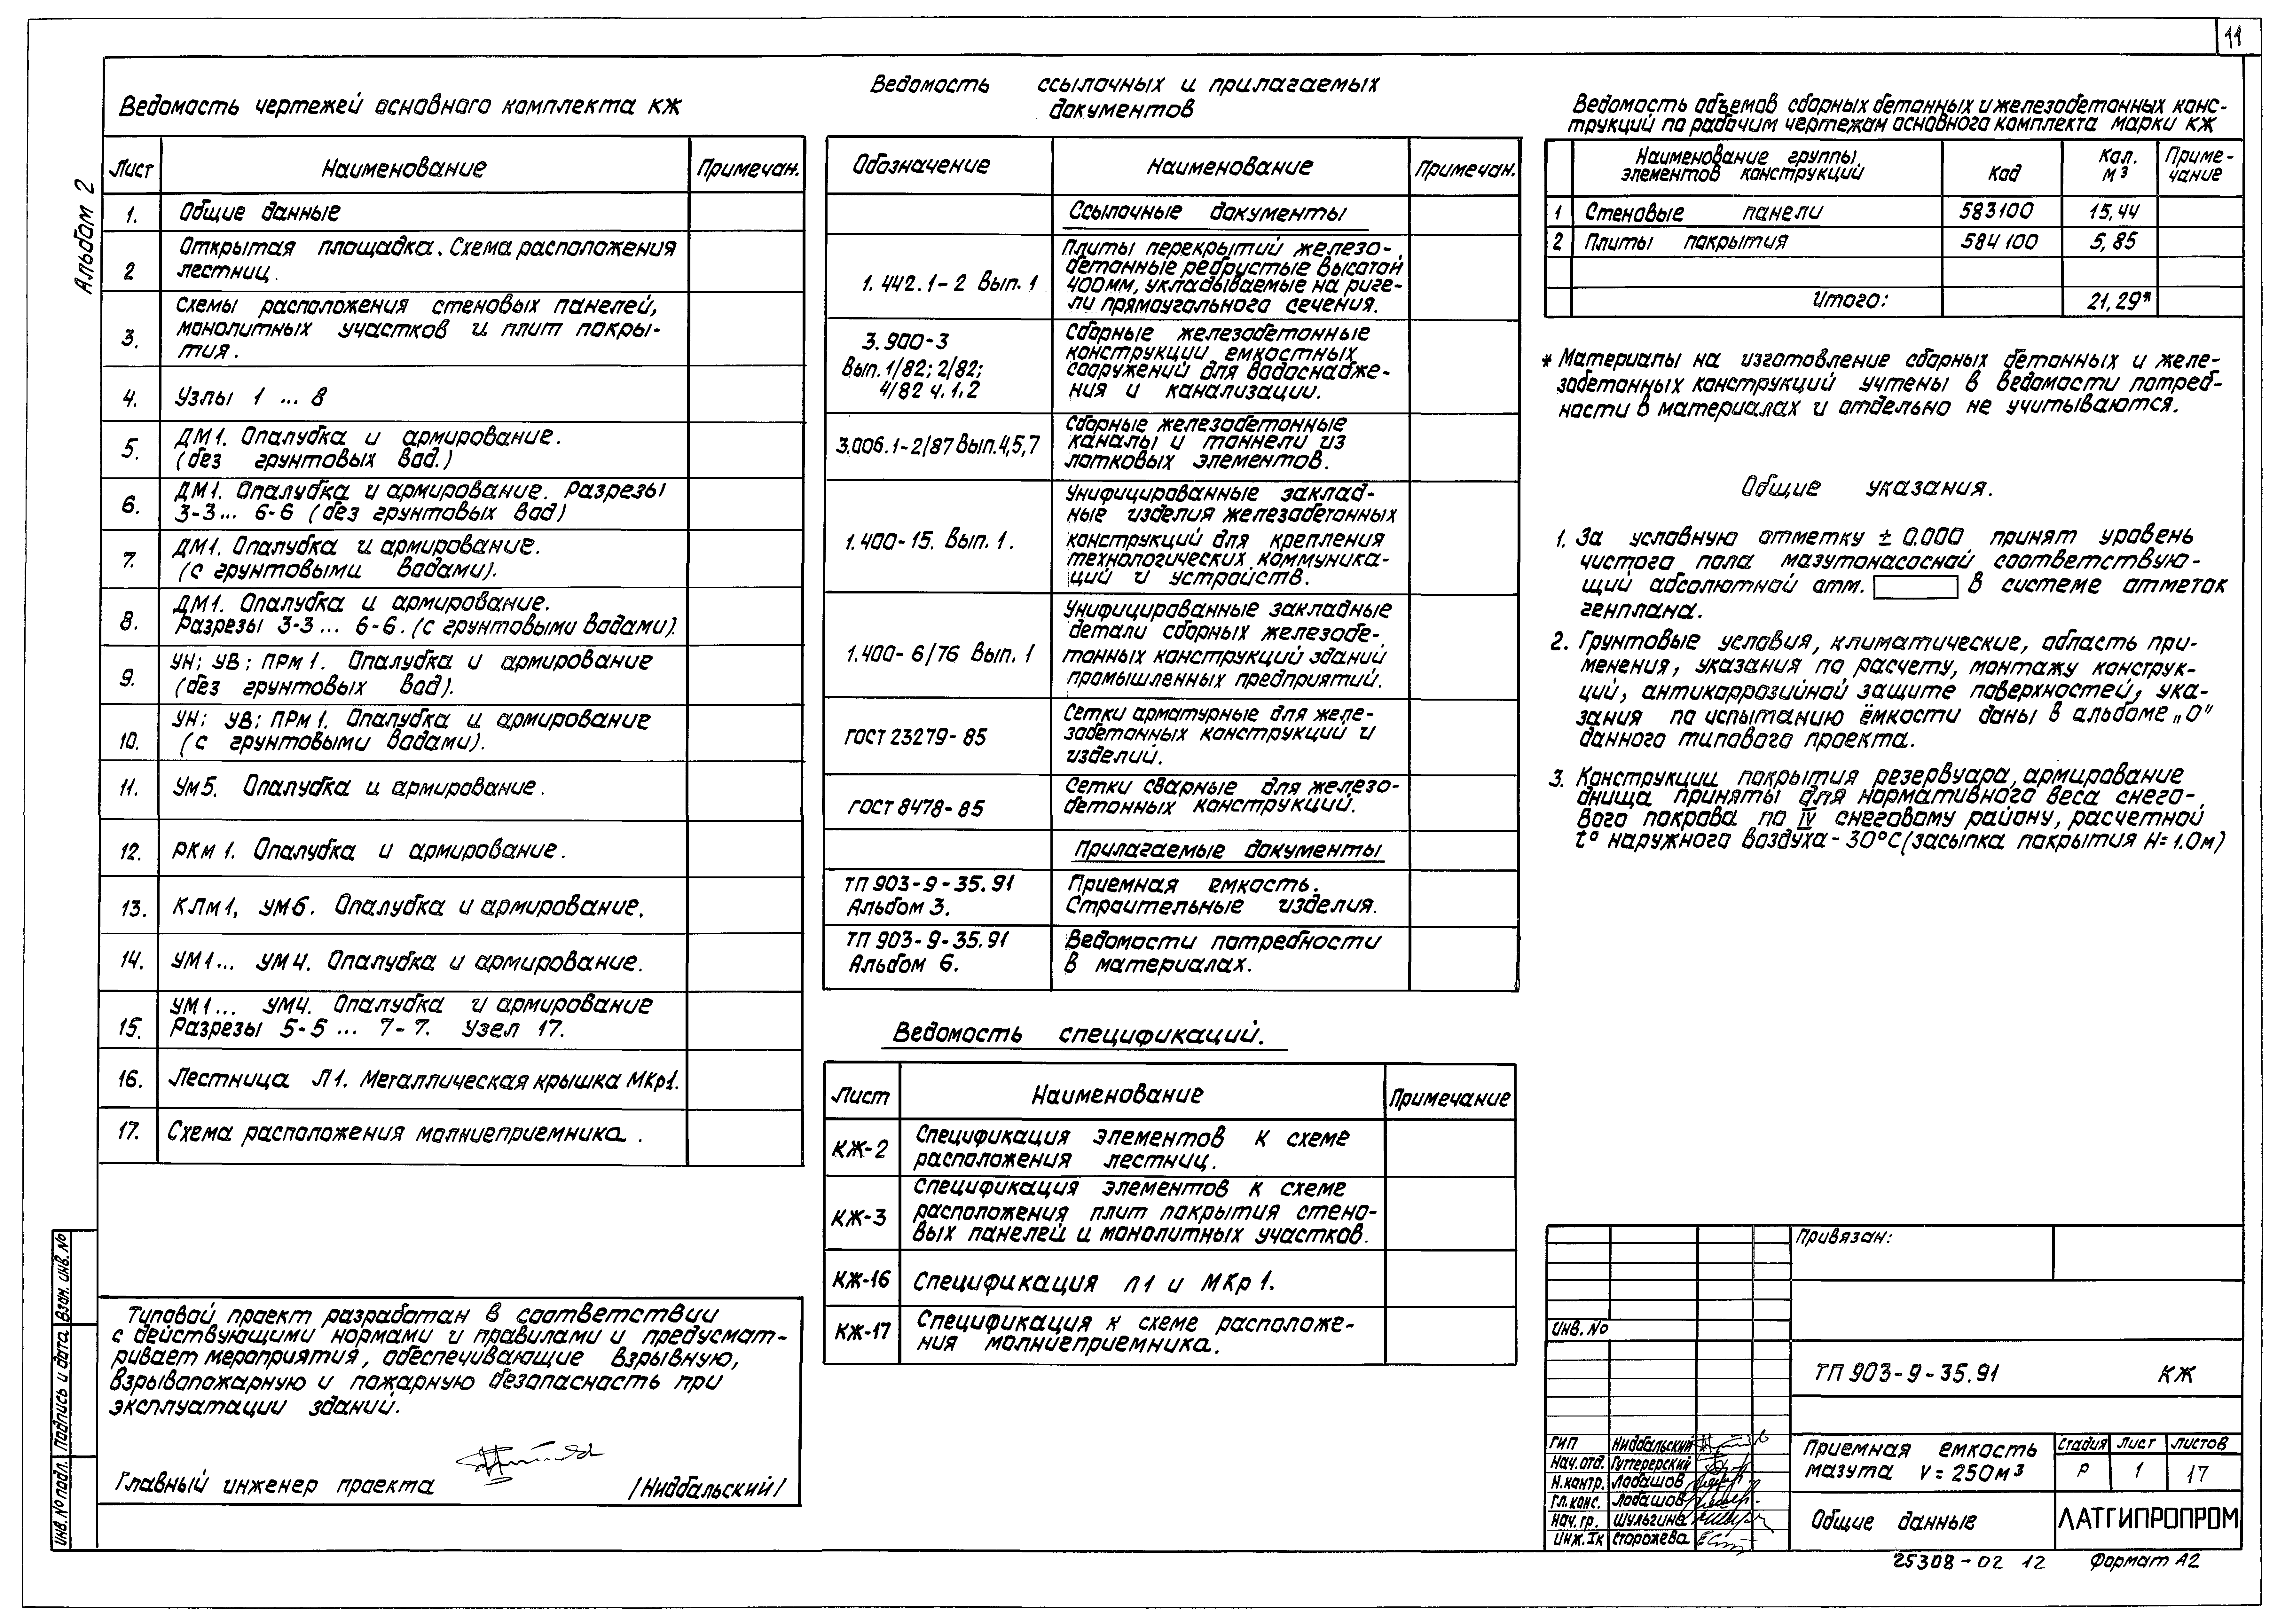 11
Альбом 2
Ведомость чертежей основного комплекта КЖ
Лист Наименование Примечан.
1. Общие данные
2 Открытая площадка. Схема расположения
лестниц.
3. Схемы расположения стеновых панелей,
монолитных участков и плит покры-
тия.
4. Узлы 1 ... 8
5. ДМ1. Опалубка и армирование.
(без грунтовых вод.)
6. ДМ1. Опалубка и армирование. Разрезы
3-3... 6-6 (без грунтовых вод)
7. ДМ1. Опалубка и армирование.
(с грунтовыми водами).
8. ДМ1. Опалубка и армирование.
Разрезы 3-3... 6-6. (с грунтовыми водами).
9. УН; УВ; ПРм1. Опалубка и армирование
(без грунтовых вод).
10. УН; УВ; ПРм1. Опалубка и армирование
(с грунтовыми водами).
11. Ум5. Опалубка и армирование.
12. РКм1. Опалубка и армирование.
13. КЛм1, УМ6. Опалубка и армирование.
14. УМ1... УМ4. Опалубка и армирование.
15. УМ1... УМ4. Опалубка и армирование
Разрезы 5-5 ... 7-7. Узел 17.
16. Лестница Л1. Металлическая крышка МКр1.
17. Схема расположения молниеприемника.
Типовой проект разработан в соответствии
с действующими нормами и правилами и предусмат-
ривает мероприятия, обеспечивающие взрывную,
взрывопожарную и пожарную безопасность при
эксплуатации зданий.
Главный инженер проекта /Нидбальский/
Ведомость ссылочных и прилагаемых
документов
Обозначение Наименование Примечан.
Ссылочные документы
1.442.1-2 Вып.1 Плиты перекрытий железо-
бетонные ребристые высотой
400мм, укладываемые на риге-
ли прямоугольного сечения.
3.900-3
Вып.1/82; 2/82;
4/82 ч.1,2
Сборные железобетонные
конструкции емкостных
сооружений для водоснабже-
ния и канализации.
3.006.1-2/87 Вып.4,5,7 Сборные железобетонные
каналы и тоннели из
лотковых элементов.
1.400-15. Вып.1. Унифицированные заклад-
ные изделия железобетонных
конструкций для крепления
технологических коммуника-
ций и устройств.
1.400-6/76 Вып.1 Унифицированные закладные
детали сборных железобе-
тонных конструкций зданий
промышленных предприятий.
ГОСТ 23279-85 Сетки арматурные для желе-
зобетонных конструкций и
изделий.
ГОСТ 8478-85 Сетки сварные для железо-
бетонных конструкций.
Прилагаемые документы
ТП 903-9-35.91 Приемная емкость.
Альбом 3. Строительные изделия.
ТП 903-9-35.91 Ведомости потребности
Альбом 6. в материалах.
Ведомость спецификаций.
Лист Наименование Примечание
КЖ-2 Спецификация элементов к схеме
расположения лестниц.
КЖ-3 Спецификация элементов к схеме
расположения плит покрытия стено-
вых панелей и монолитных участков.
КЖ-16 Спецификация Л1 и МКр1.
КЖ-17 Спецификация к схеме расположе-
ния молниеприемника.
Ведомость объемов сборных бетонных и железобетонных конс-
трукций по рабочим чертежам основного комплекта марки КЖ
Наименование группы элементов конструкций Код Кол. м³ Приме-чание
1 Стеновые панели 583100 15,44
2 Плиты покрытия 584100 5,85
Итого: 21,29*
* Материалы на изготовление сборных бетонных и желе-
зобетонных конструкций учтены в ведомости потреб-
ности в материалах и отдельно не учитываются.
Общие указания.
1. За условную отметку ± 0.000 принят уровень
чистого пола мазутонасосной соответствую-
щий абсолютной отм. в системе отметок
генплана.
2. Грунтовые условия, климатические, область при-
менения, указания по расчету, монтажу конструк-
ций, антикоррозийной защите поверхностей, ука-
зания по испытанию ёмкости даны в альбоме „О"
данного типового проекта.
3. Конструкции покрытия резервуара, армирование
днища приняты для нормативного веса снего-
вого покрова по IV снеговому району, расчетной
t° наружного воздуха - 30°С (засыпка покрытия Н= 1.0м)
Привязан:
Инв.No
ТП 903-9-35.91 КЖ
ГИП Нидбальский
Нач.отд. Гуттерерский
Н.контр. Лобашов
Гл.конс. Лобашов
Нач.гр. Шульгина
Инж.Iк Сторожева
Приемная емкость
мазута V = 250м³
Стадия Лист Листов
Р 1 17
Общие данные
ЛАТГИПРОПРОМ
25308-02 12 Формат А2
Инв.No подл. Подпись и дата Взам. инв.No